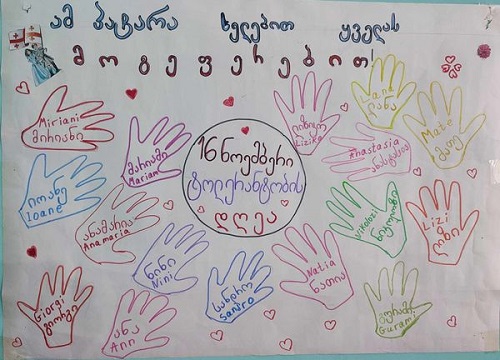 ამ პატარა ხელებით ყველას
მოგეფერებით!
Miriani
მირიანი
მარიამი
Mariam
ლიზიკო
Liziko
ლანა
Mate
მათე
Anastasia
ანასტასია
16 ნოემბერი
ტოლერანტობის
დღეა
იოანე
Ioane
ანამარია
Anamaria
ნინი
Nini
სანდრო
Sandro
Natia
ნათია
Lizi
ლიზი
Giorgi
გიორგი
ანა
Ann
გურამი
Gurami